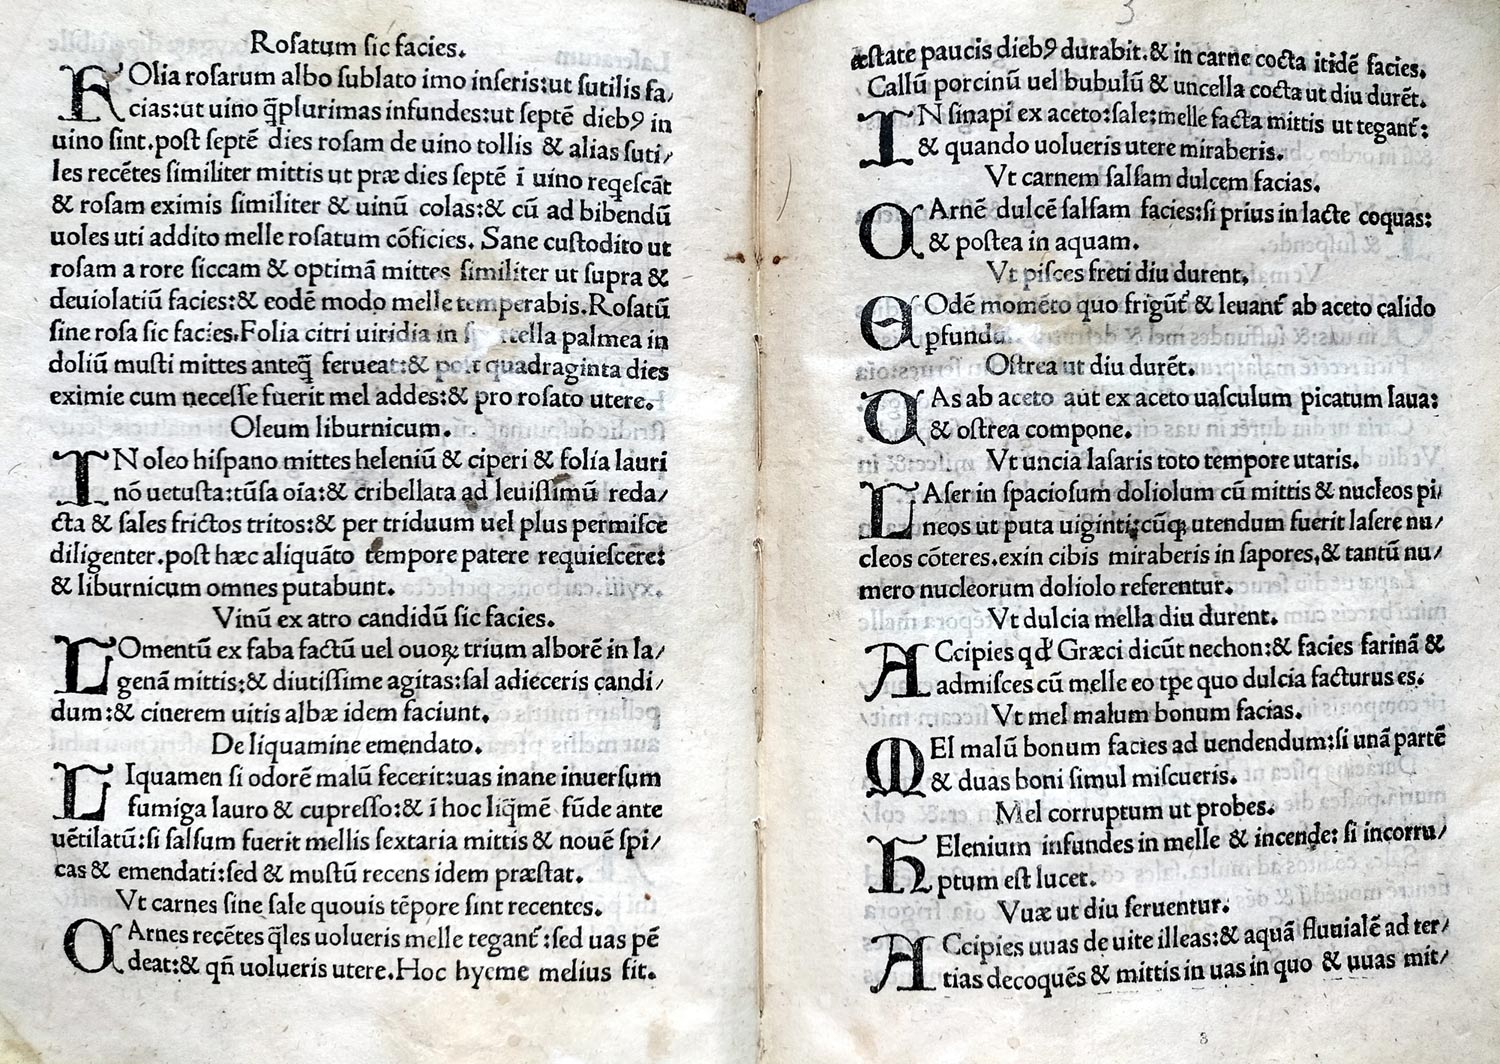 Roſatum ſic facies.
FOlia roſarum albo ſublato imo inſeris:ut ſutilis fa/
cias:ut uino q̄plurimas infundes:ut ſeptē diebꝰ in
uino ſint.poſt ſeptē dies roſam de uino tollis & alias ſuti/
les recētes ſimiliter mittis ut præ dies ſeptē ī uino reqeſcāt
& roſam eximis ſimiliter & uinū colas:& cū ad bibendū
uoles uti addito melle roſatum cōficies. Sane cuſtodito ut
roſam a rore ſiccam & optimā mittes ſimiliter ut ſupra &
deuiolatiū facies:& eodē modo melle temperabis.Roſatū
ſine roſa ſic facies.Folia citri uiridia in palmea in
doliū muſti mittes anteq̄ ferueat:& poſt quadraginta dies
eximie cum neceſſe fuerit mel addes:& pro roſato utere.
Oleum liburnicum.
IN oleo hiſpano mittes heleniū & ciperi & folia lauri
nō uetuſta:tūſa oīa:& cribellata ad leuiſſimū reda/
cta & ſales frictos tritos:& per triduum uel plus permiſce
diligenter.poſt hæc aliquāto tempore patere requieſcēre:
& liburnicum omnes putabunt.
Vinū ex atro candidū ſic facies.
LOmentū ex faba factū uel ouoꝝ trium alborē in la/
genā mittis:& diutiſſime agitas:ſal adieceris candi/
dum:& cinerem uitis albæ idem faciunt.
De liquamine emendato.
LIquamen ſi odorē malū fecerit:uas inane inuerſum
fumiga lauro & cupreſſo:& ī hoc liq̄mē fūde ante
uētilatū:ſi ſalſum fuerit mellis ſextaria mittis & nouē ſpi/
cas & emendati:ſed & muſtū recens idem præſtat.
Vt carnes ſine ſale quouis tēpore ſint recentes.
CArnes recētes q̄les uolueris melle tegant᷑:ſed uas pē
deat:& qn̄ uolueris utere.Hoc hyeme melius fit.
æſtate paucis diebꝰ durabit.& in carne cocta itidē facies.
Callū porcinū uel bubulū & uncella cocta ut diu durēt.
IN ſinapi ex aceto:ſale:melle facta mittis ut tegant᷑:
& quando uolueris utere miraberis.
Vt carnem ſalſam dulcem facias.
CArnē dulcē ſalſam facies:ſi prius in lacte coquas:
& poſtea in aquam.
Vt piſces freti diu durent,
EOdē momēto quo frigūt᷑ & leuant᷑ ab aceto calido
pfundu
Oſtrea ut diu durēt.
VAs ab aceto aut ex aceto uaſculum picatum laua:
& oſtrea compone.
Vt uncia laſaris toto tempore utaris.
LAſer in ſpacioſum doliolum cū mittis & nucleos pi/
neos ut puta uiginti:cūqꝫ utendum fuerit laſere nu/
cleos cōteres.exin cibis miraberis in ſapores,& tantū nu/
mero nucleorum doliolo referentur.
Vt dulcia mella diu durent.
ACcipies qd̓ Græci dicūt nechon:& facies farinā &
admiſces cū melle eo tp̄e quo dulcia facturus es.
Vt mel malum bonum facias.
MEl malū bonum facies ad uendendum:ſi unā partē
& duas boni ſimul miſcueris.
Mel corruptum ut probes.
HElenium infundes in melle & incende: ſi incorru/
ptum eſt lucet.
Vuæ ut diu ſeruentur.
ACcipies uuas de uite illeas:& aquā fluuialē ad ter/
tias decoquēs & mittis in uas in quo & uuas mit/
3